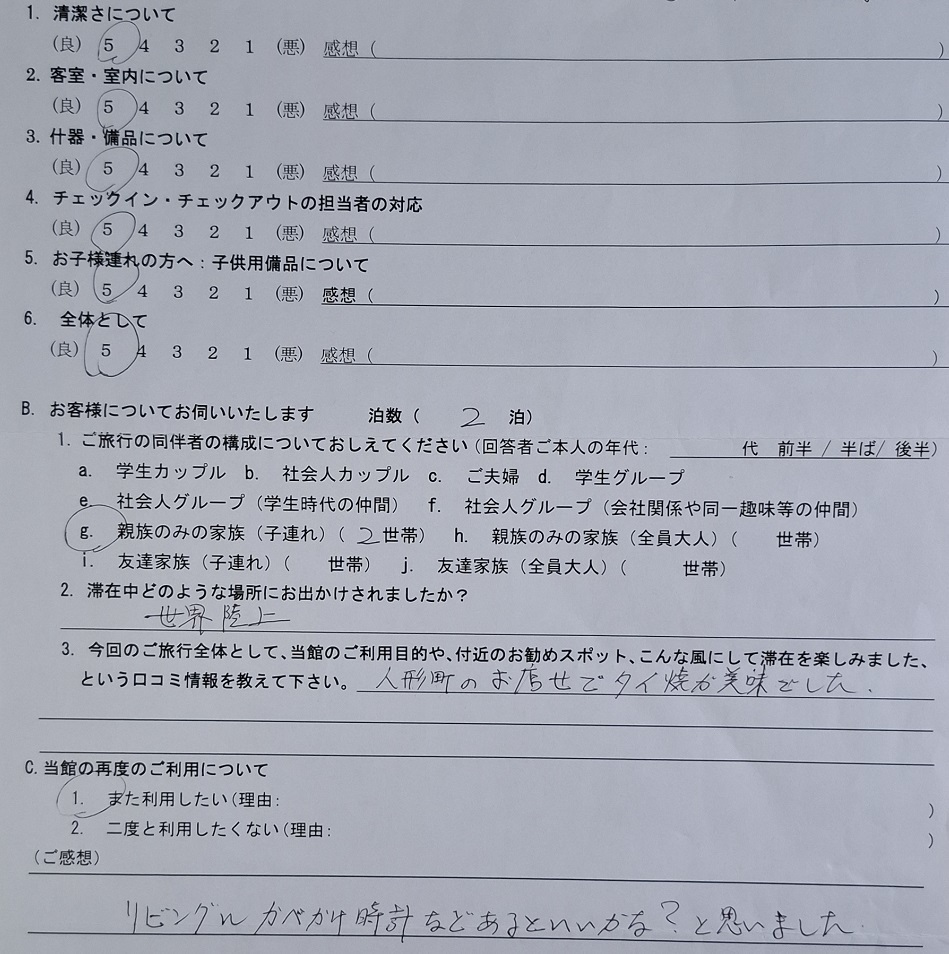 1. 清潔さについて
(良) 5 4 3 2 1 (悪) 感想 ( )
2. 客室・室内について
(良) 5 4 3 2 1 (悪) 感想 ( )
3. 什器・備品について
(良) 5 4 3 2 1 (悪) 感想 ( )
4. チェックイン・チェックアウトの担当者の対応
(良) 5 4 3 2 1 (悪) 感想 ( )
5. お子様連れの方へ：子供用備品について
(良) 5 4 3 2 1 (悪) 感想 ( )
6. 全体として
(良) 5 4 3 2 1 (悪) 感想 ( )
B. お客様についてお伺いいたします 泊数 ( 2 泊)
1. ご旅行の同伴者の構成についておしえてください (回答者ご本人の年代： 代 前半 / 半ば/ 後半)
a. 学生カップル b. 社会人カップル c. ご夫婦 d. 学生グループ
e. 社会人グループ (学生時代の仲間) f. 社会人グループ (会社関係や同一趣味等の仲間)
g. 親族のみの家族 (子連れ) ( 2 世帯) h. 親族のみの家族 (全員大人) ( 世帯)
i. 友達家族 (子連れ) ( 世帯) j. 友達家族 (全員大人) ( 世帯)
2. 滞在中どのような場所にお出かけされましたか？
世界陸上
3. 今回のご旅行全体として、当館のご利用目的や、付近のお勧めスポット、こんな風にして滞在を楽しみました、
という口コミ情報を教えて下さい。 人形町のお店せでタイ焼が美味でした.
C. 当館の再度のご利用について
1. また利用したい (理由： )
2. 二度と利用したくない (理由： )
(ご感想)
リビングんかべかけ時計などあるといいかな？と思いました